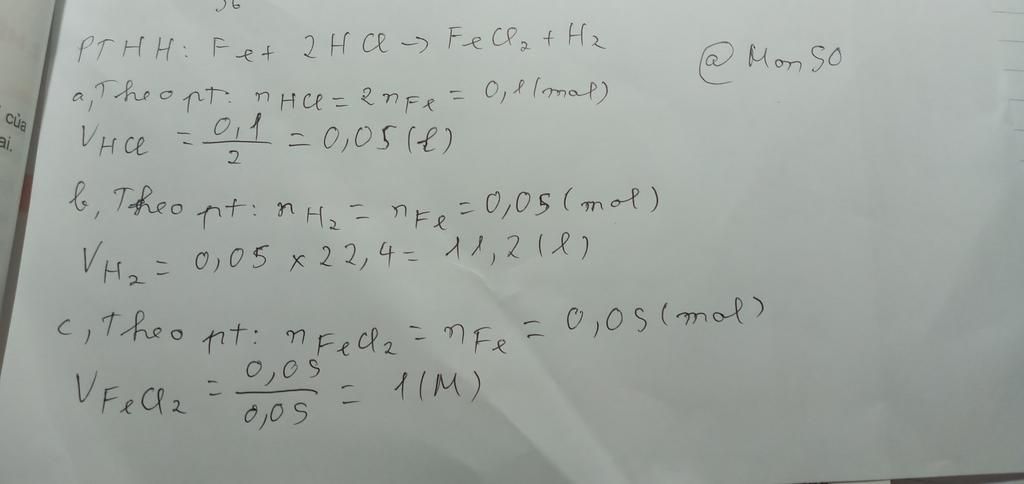 56
PTHH: Fe + 2HCl → FeCl₂ + H₂
@MonSO
a, Theo pt: nHCl = 2nFe = 0,1 (mol)
của
ai.
VHCl = 0,1/2 = 0,05 (l)
b, Theo pt: nH₂ = nFe = 0,05 (mol)
VH₂ = 0,05 × 22,4 = 11,2 (l)
c, Theo pt: nFeCl₂ = nFe = 0,05 (mol)
VFeCl₂ = 0,05/0,05 = 1 (M)